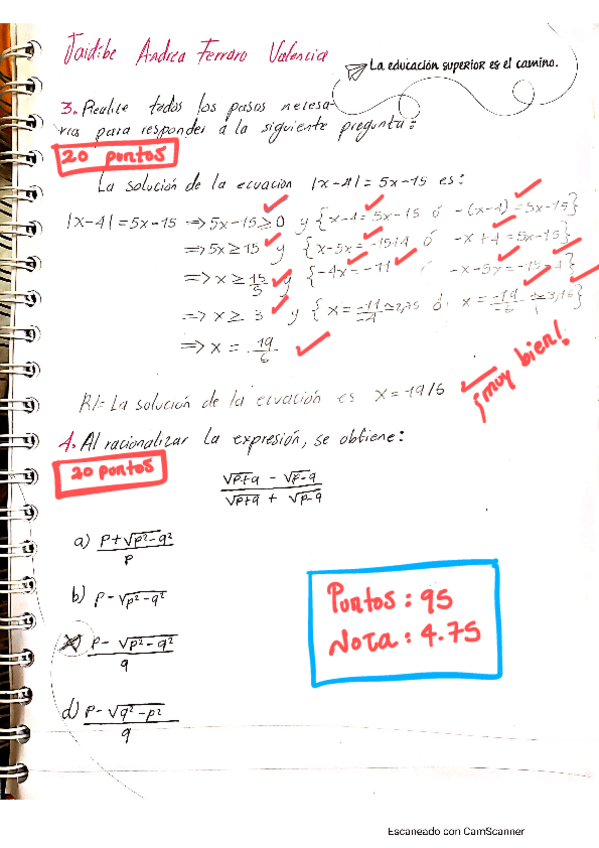 Jaidibe Andrea Ferraro Valencia
La educación superior es el camino.
3. Realice todos los pasos necesa-
rios para responder a la siguiente pregunta:
20 puntos
La solución de la ecuacion |x-4| = 5x-15 es:
|x-4| = 5x-15 => 5x-15 ≥ 0 y {x-4 = 5x-15 ó -(x-4) = 5x-15}
=> 5x ≥ 15 y {x-5x = -15+4 ó -x+4 = 5x-15}
=> x ≥ 15/5 y {-4x = -11 ó -x-5x = -15-4}
=> x ≥ 3 y {x = -11/-4 ≃ 2,75 ó x = -19/-6 ≃ 3,16}
=> x = 19/6
¡muy bien!
R/= La solución de la ecuación es x = 19/6
4. Al racionalizar la expresión, se obtiene:
20 puntos
√p+q - √p-q
√p+q + √p-q
a) p+√p²-q²
p
b) p-√p²-q²
p-√p²-q²
q
d) p-√q²-p²
q
Puntos: 95
Nota: 4.75
Escaneado con CamScanner